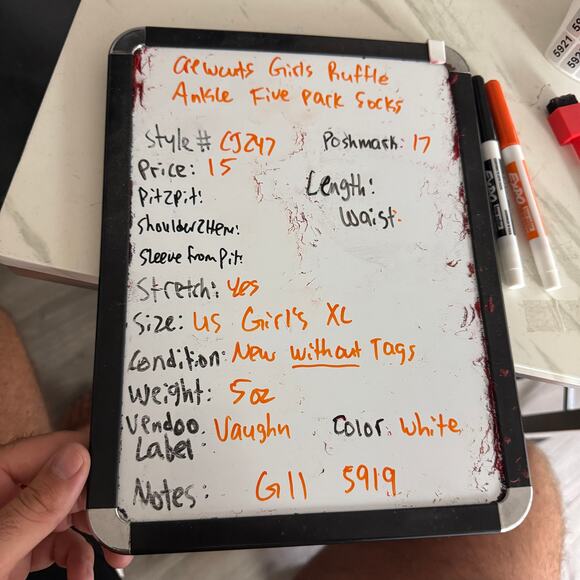 alwcuts Girls Ruffle
Ankle Five Pack Socks
Style# CJ247 Poshmark: 17
Price: 15
Pit2Pit: Length:
Shoulder2Hem: Waist:
Sleeve from Pit:
Stretch: Yes
Size: US Girl's XL
Condition: New without Tags
Weight: 5oz
Vendoo Label: Vaughn Color: White
Notes: G11 5919
EXPO
EXPO
5921
5920